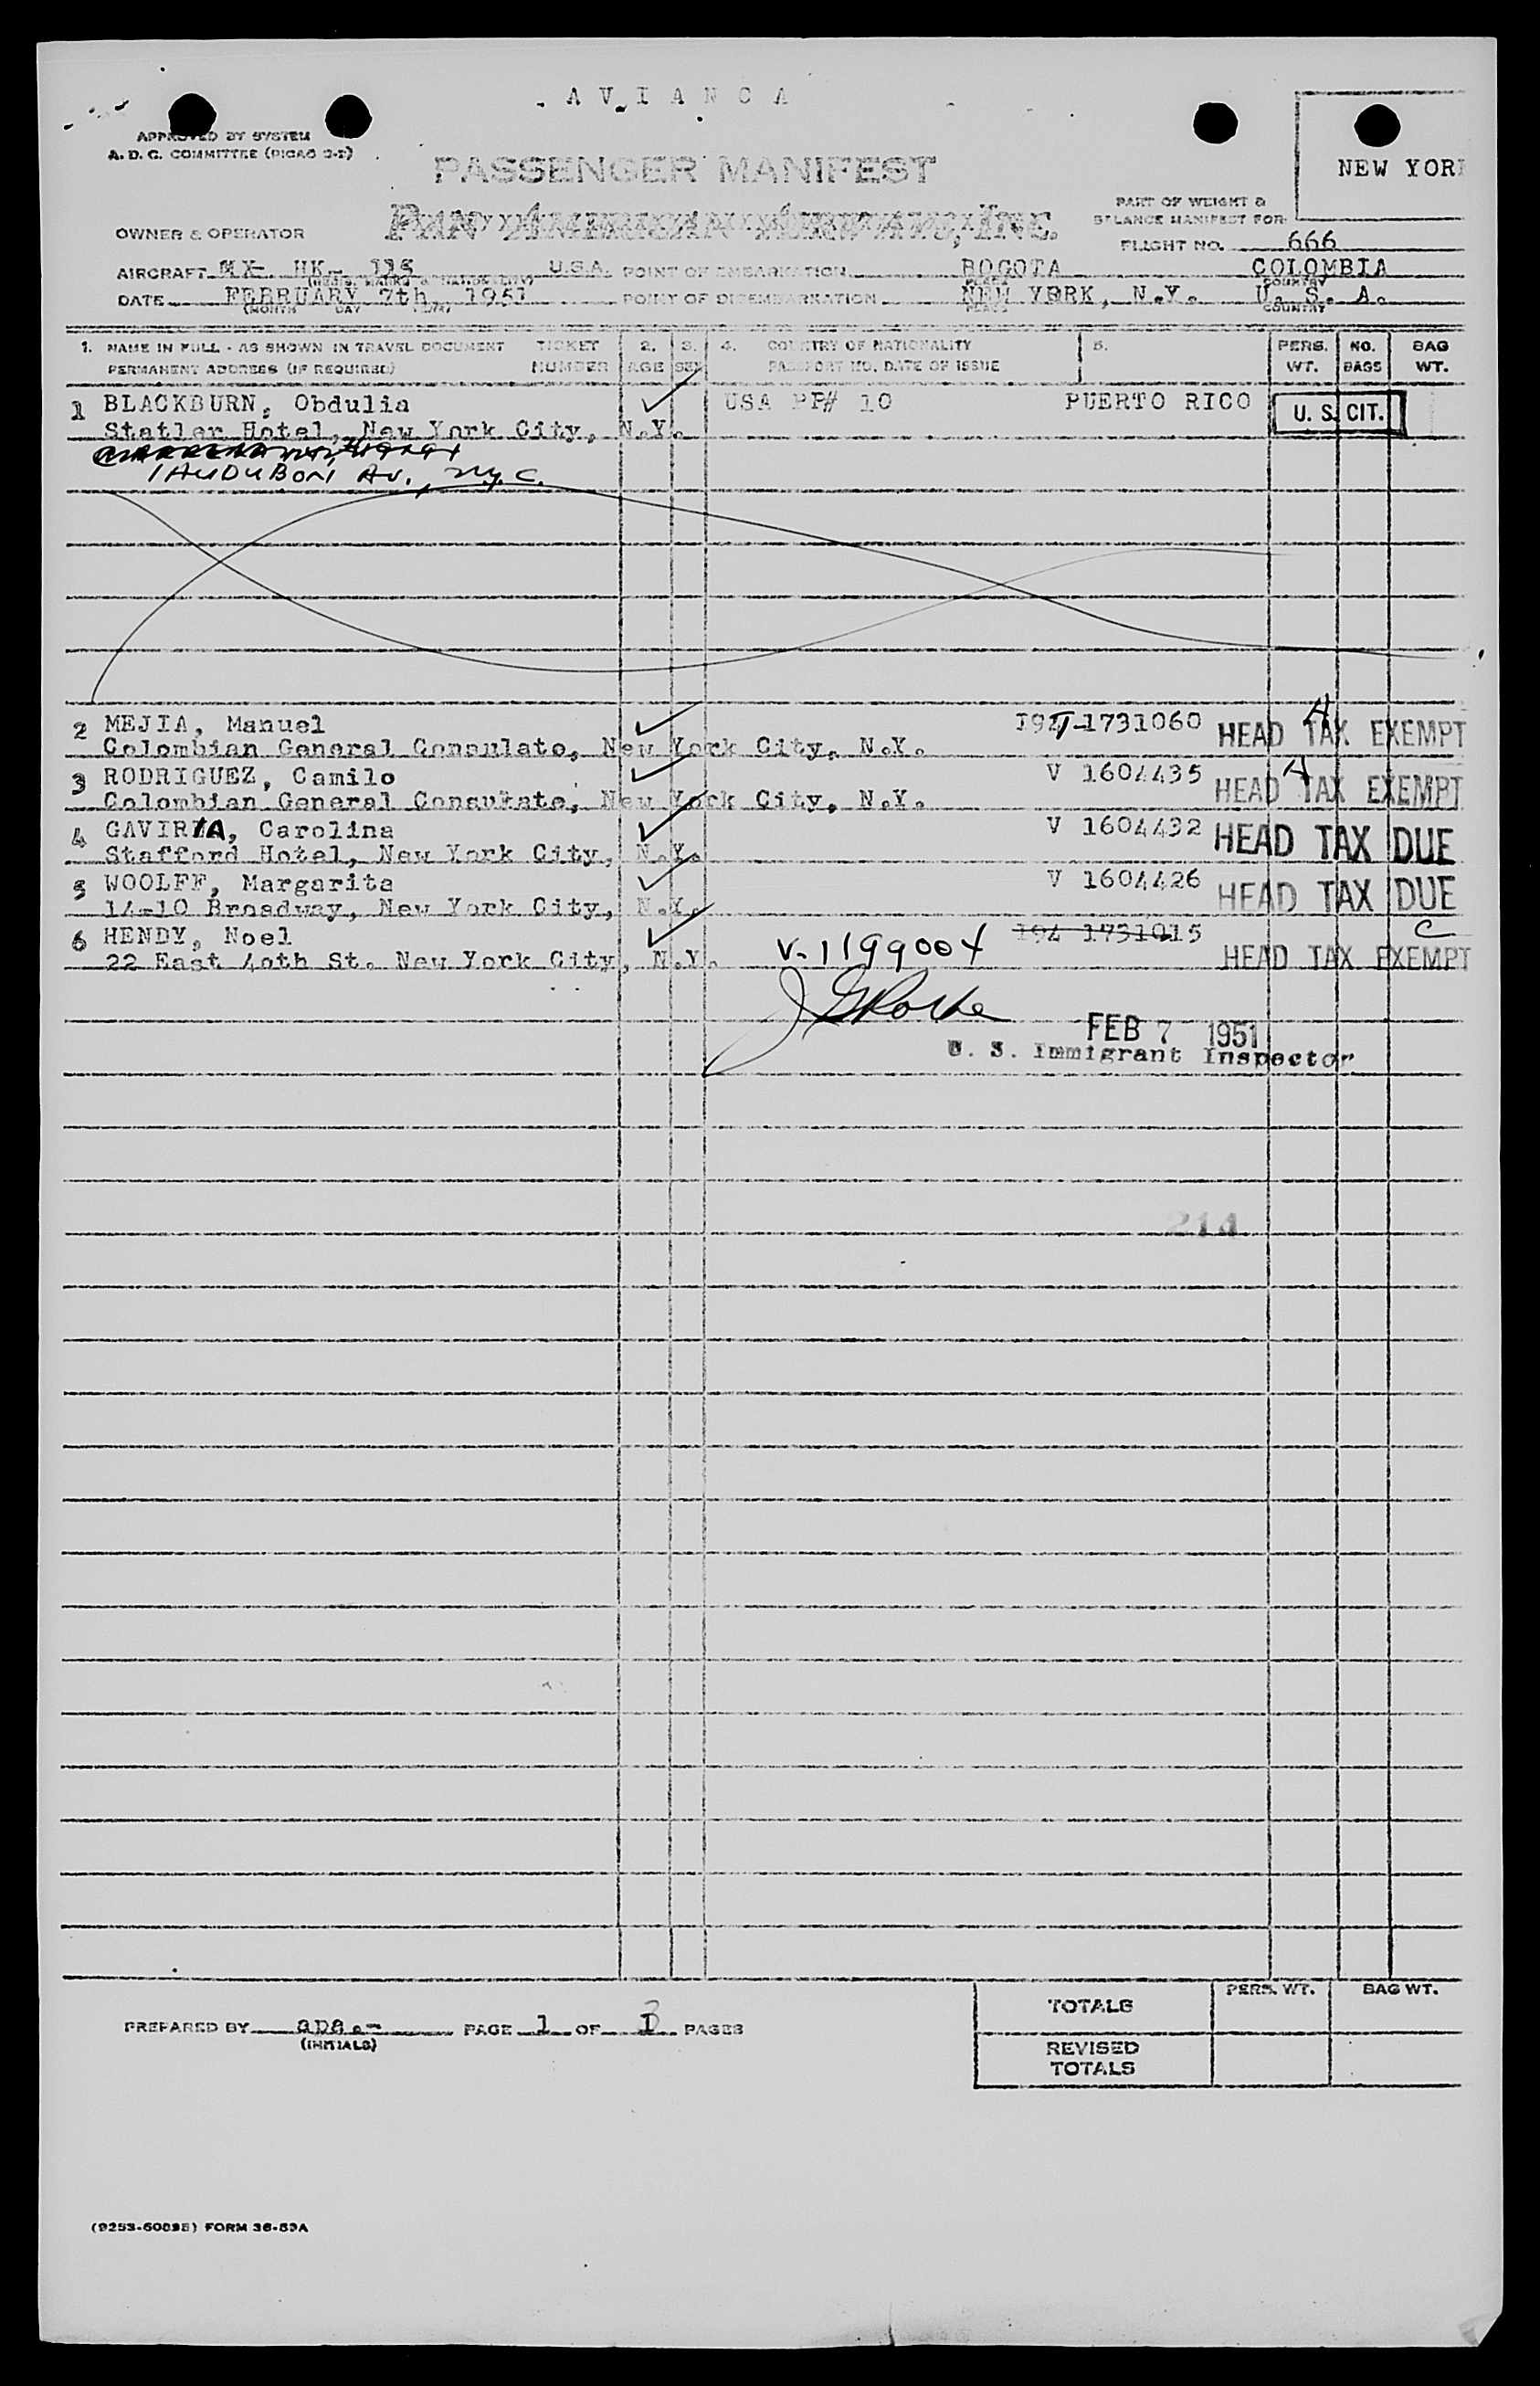 AVIANCA
APPROVED BY SYSTEM
A. D. C. COMMITTEE
NEW YOR
PASSENGER MANIFEST
PAN AMERICAN AIRWAYS, INC.
PART OF WEIGHT &
BALANCE MANIFEST FOR
OWNER & OPERATOR
FLIGHT NO. 666
AIRCRAFT HK- U.S.A. POINT OF EMBARKATION BOGOTA COLOMBIA
PLACE COUNTRY
DATE FEBRUARY 7th, 1951 POINT OF DISEMBARKATION NEW YORK, N.Y. U. S. A.
(MONTH DAY YEAR) PLACE COUNTRY
1. NAME IN FULL - AS SHOWN IN TRAVEL DOCUMENT TICKET 2. 3. 4. COUNTRY OF NATIONALITY 5. PERS. NO. BAG
PERMANENT ADDRESS (IF REQUIRED) NUMBER AGE SEX PASSPORT NO. DATE OF ISSUE WT. BAGS WT.
1 BLACKBURN, Obdulia USA PP# 10 PUERTO RICO U. S. CIT.
Statler Hotel, New York City, N.Y.
1 AUDUBON AV., N.Y.C.
2 MEJIA, Manuel 1731060 HEAD TAX EXEMPT
Colombian General Consulate, New York City, N.Y.
3 RODRIGUEZ, Camilo V 1604435 HEAD TAX EXEMPT
Colombian General Consulate, New York City, N.Y.
4 GAVIRIA, Carolina V 1604432 HEAD TAX DUE
Stafford Hotel, New York City, N.Y.
5 WOOLFF, Margarita V 1604426 HEAD TAX DUE
14-10 Broadway, New York City, N.Y.
6 HENDY, Noel V-1199004 194 1731015 C
22 East 40th St. New York City, N.Y. HEAD TAX EXEMPT
FEB 7 1951
U. S. Immigrant Inspector
214
PREPARED BY apa.- PAGE 1 OF 3 PAGES
(INITIALS)
TOTALS PERS. WT. BAG WT.
REVISED
TOTALS
FORM 36-59A